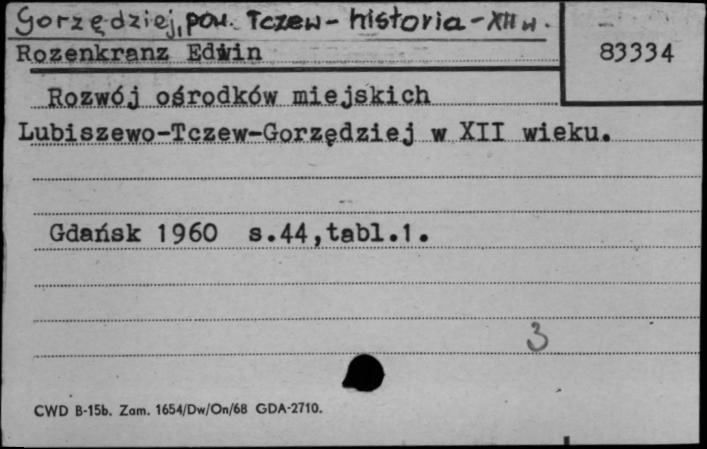 Gorzędziej, pow. Tczew - historia - XII w.
Rozenkranz Edwin
83334
Rozwój ośrodków miejskich
Lubiszewo-Tczew-Gorzędziej w XII wieku.
Gdańsk 1960 s.44,tabl.1.
3
CWD B-15b. Zam. 1654/Dw/On/68 GDA-2710.